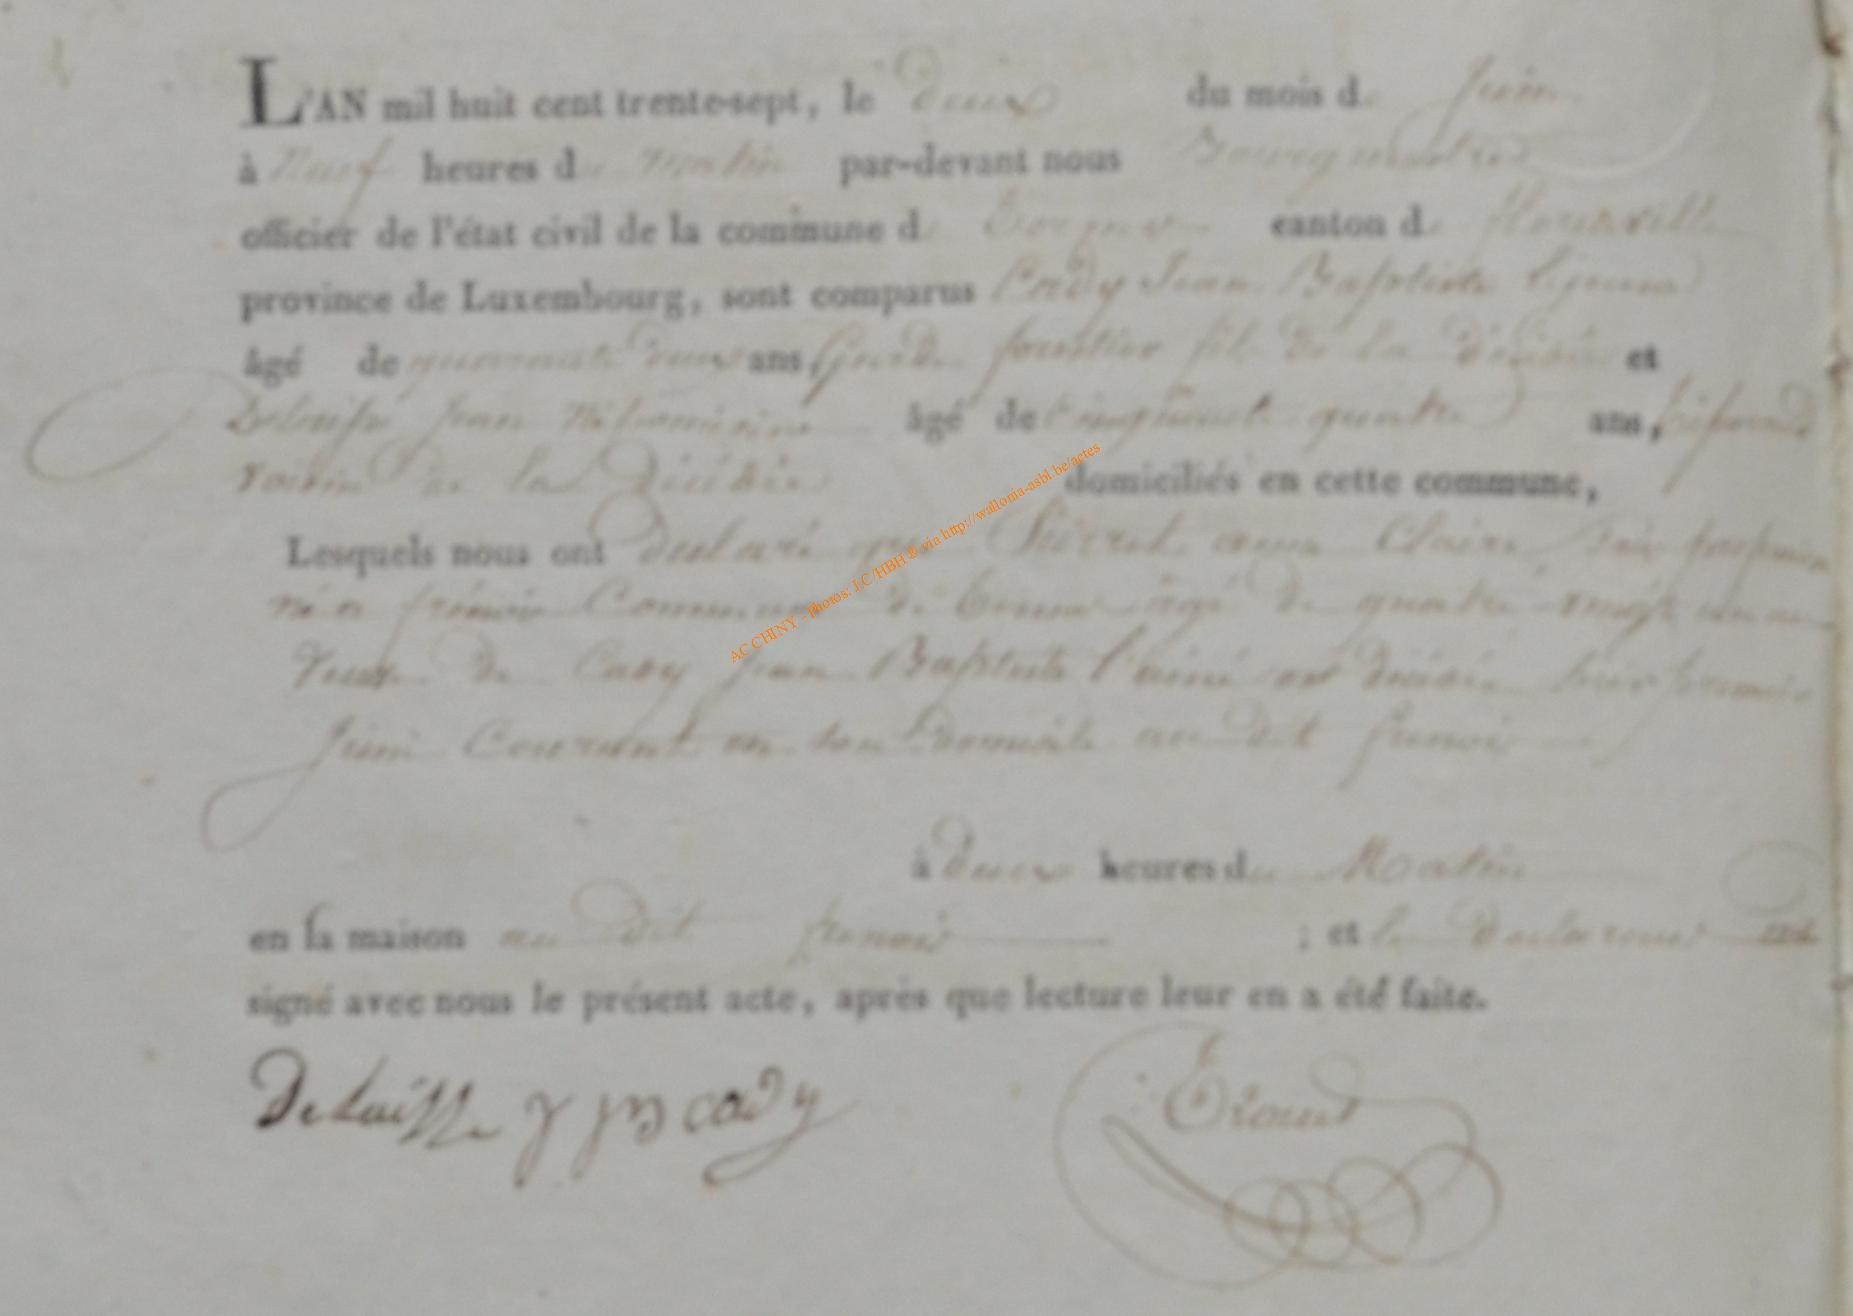 L'AN mil huit cent trente-sept, le deux du mois de Juin
à Neuf heures du matin par-devant nous Bourgmestre
officier de l'état civil de la commune de canton de florenville
province de Luxembourg, sont comparus Cady Jean Baptiste le jeune
âgé de quarante deux ans, Garde forestier fils de la décédée et
Delaisse Jean âgé de cinquante quatre ans,
voisin de la décédée domiciliés en cette commune,
Lesquels nous ont declaré que anne Claire
née a frenois Commune de âgé de quatre vingt
veuve de Cady Jean Baptiste l'ainé est décédée hier premier
Juin Courant en son domicile au dit frenois
à deux heures du Matin
en sa maison au dit frenois ; et les declarans ont
signé avec nous le présent acte, après que lecture leur en a été faite.
Delaisse J JB Cady
AC CHINY - photos: J-C/HBH © via http://wallonia-asbl.be/actes